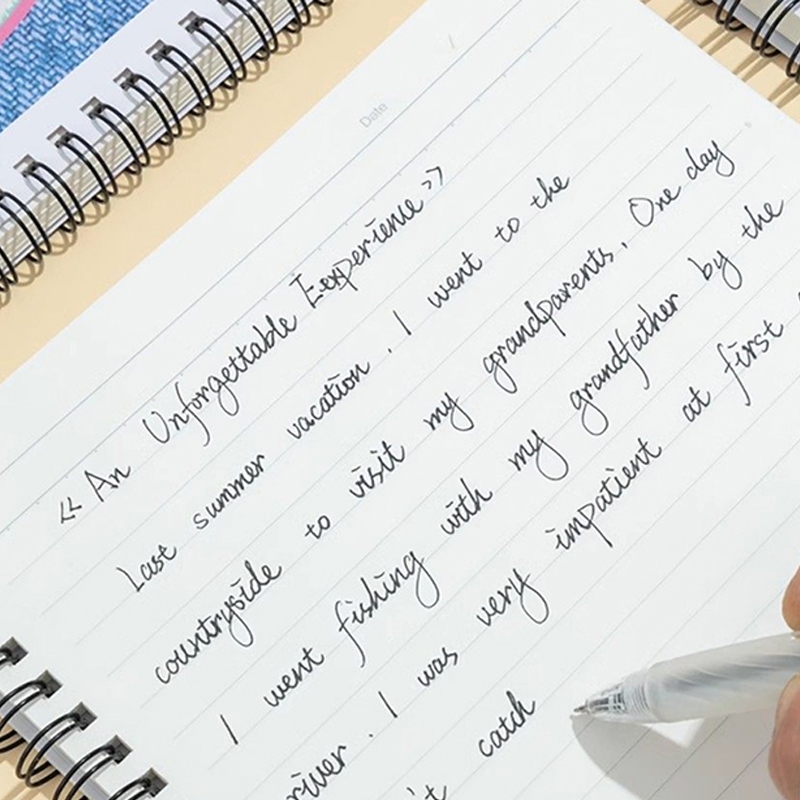 Date
《An Unforgettable Eexperience》
Last summer vacation. I went to the
countryside to visit my grandparents. One day
I went fishing with my grandfather by the
river. I was very impatient at first
catch